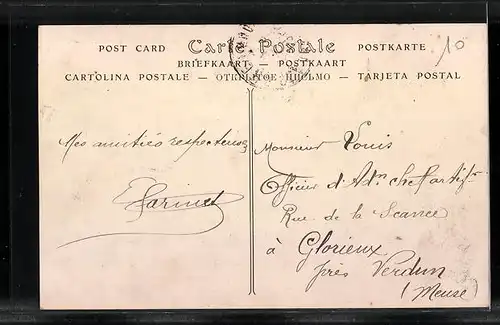 POST CARD Carte Postale POSTKARTE
BRIEFKAART — POSTKAART
CARTOLINA POSTALE — ОТКРЫТОЕ ПИСЬМО — TARJETA POSTAL
10
Mes amitiés respectueuses
Monsieur Louis
Officier d'Adm
Rue de la
à Glorieux
près Verdun
(Meuse)